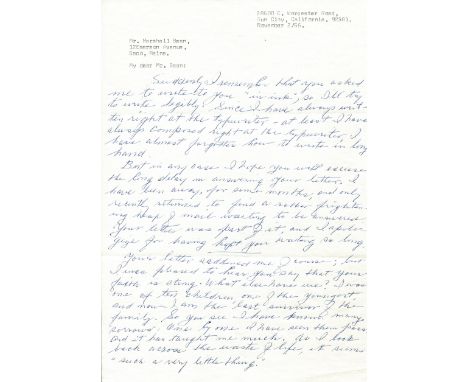 Worcester Road,
Sun City, California,
November 2/66.
Mr. Marshall Bean,
Emerson Avenue,
Maine.
My dear Mr. Bean:
Suddenly I remember that you asked
me to write to you "in ink", so I'll try
to write legibly. Since I have always writ-
ten right at the typewriter - at least I have
always composed right at the typewriter, I
have almost forgotten how to write in long
hand.
But in any case I hope you will excuse
the long delay in answering your letter. I
have been away, for some months, and only
recently returned to find a rather frighten-
ing heap of mail waiting to be answered.
Your letter was part of it, and I apolo-
gize for having kept you waiting so long.
Your letter saddened me of course; but
I was pleased to hear you say that your
faith is strong. What else have we? I was
one of ten children, one of the youngest
and now I am the last survivor of the
family. So you see I have known many
sorrows. One by one I have seen them pass
and it has taught me much. As I look
back across the waste of life, it seems
"such a very little thing."